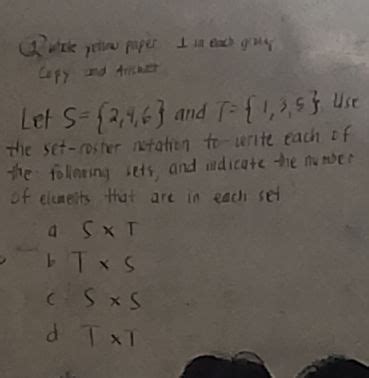 whole yellow paper 1 in each group
Copy and Answer
Let S = {2,4,6} and T = {1,3,5}. Use
the set-roster notation to write each of
the following sets, and indicate the number
of elements that are in each set
a S x T
b T x S
c S x S
d T x T